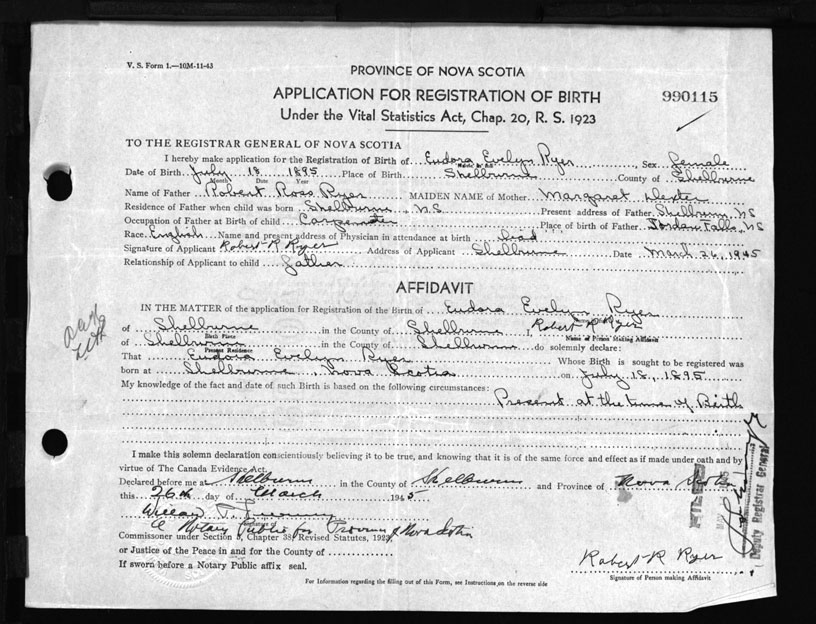 V. S. Form 1.—10M-11-43
PROVINCE OF NOVA SCOTIA
APPLICATION FOR REGISTRATION OF BIRTH
990115
Under the Vital Statistics Act, Chap. 20, R. S. 1923
TO THE REGISTRAR GENERAL OF NOVA SCOTIA
I hereby make application for the Registration of Birth of Eudora Evelyn Ryer, Sex female
Name in full
Date of Birth July 18 1895 Place of Birth Shelburne County of Shelburne
Month Date Year
Name of Father Robert Ross Ryer MAIDEN NAME of Mother Margaret Dexter
Residence of Father when child was born Shelburne, N.S. Present address of Father Shelburn, NS
Occupation of Father at Birth of child Carpenter Place of birth of Father Jordan Falls, NS
Race English Name and present address of Physician in attendance at birth dead
Signature of Applicant Robert R Ryer Address of Applicant Shelburne Date March 26, 1945
Relationship of Applicant to child father
AFFIDAVIT
IN THE MATTER of the application for Registration of the Birth of Eudora Evelyn Ryer
of Shelburne in the County of Shelburne I, Robert R Ryer
Birth Place Name of Person Making Affidavit
of Shelburne in the County of Shelburne do solemnly declare:
Present Residence
That Eudora Evelyn Ryer Whose Birth is sought to be registered was
born at Shelburne, Nova Scotia on July 18, 1895
My knowledge of the fact and date of such Birth is based on the following circumstances:
Present at the time of Birth
I make this solemn declaration conscientiously believing it to be true, and knowing that it is of the same force and effect as if made under oath and by
virtue of The Canada Evidence Act.
Declared before me at Shelburne in the County of Shelburne and Province of Nova Scotia
this 26th day of March 1945
A Notary Public for Province of Nova Scotia
Commissioner under Section 3, Chapter 38, Revised Statutes, 1923
or Justice of the Peace in and for the County of
If sworn before a Notary Public affix seal.
Robert R Ryer
Signature of Person making Affidavit
For Information regarding the filling out of this Form, see Instructions on the reverse side
FILED
Deputy Registrar General